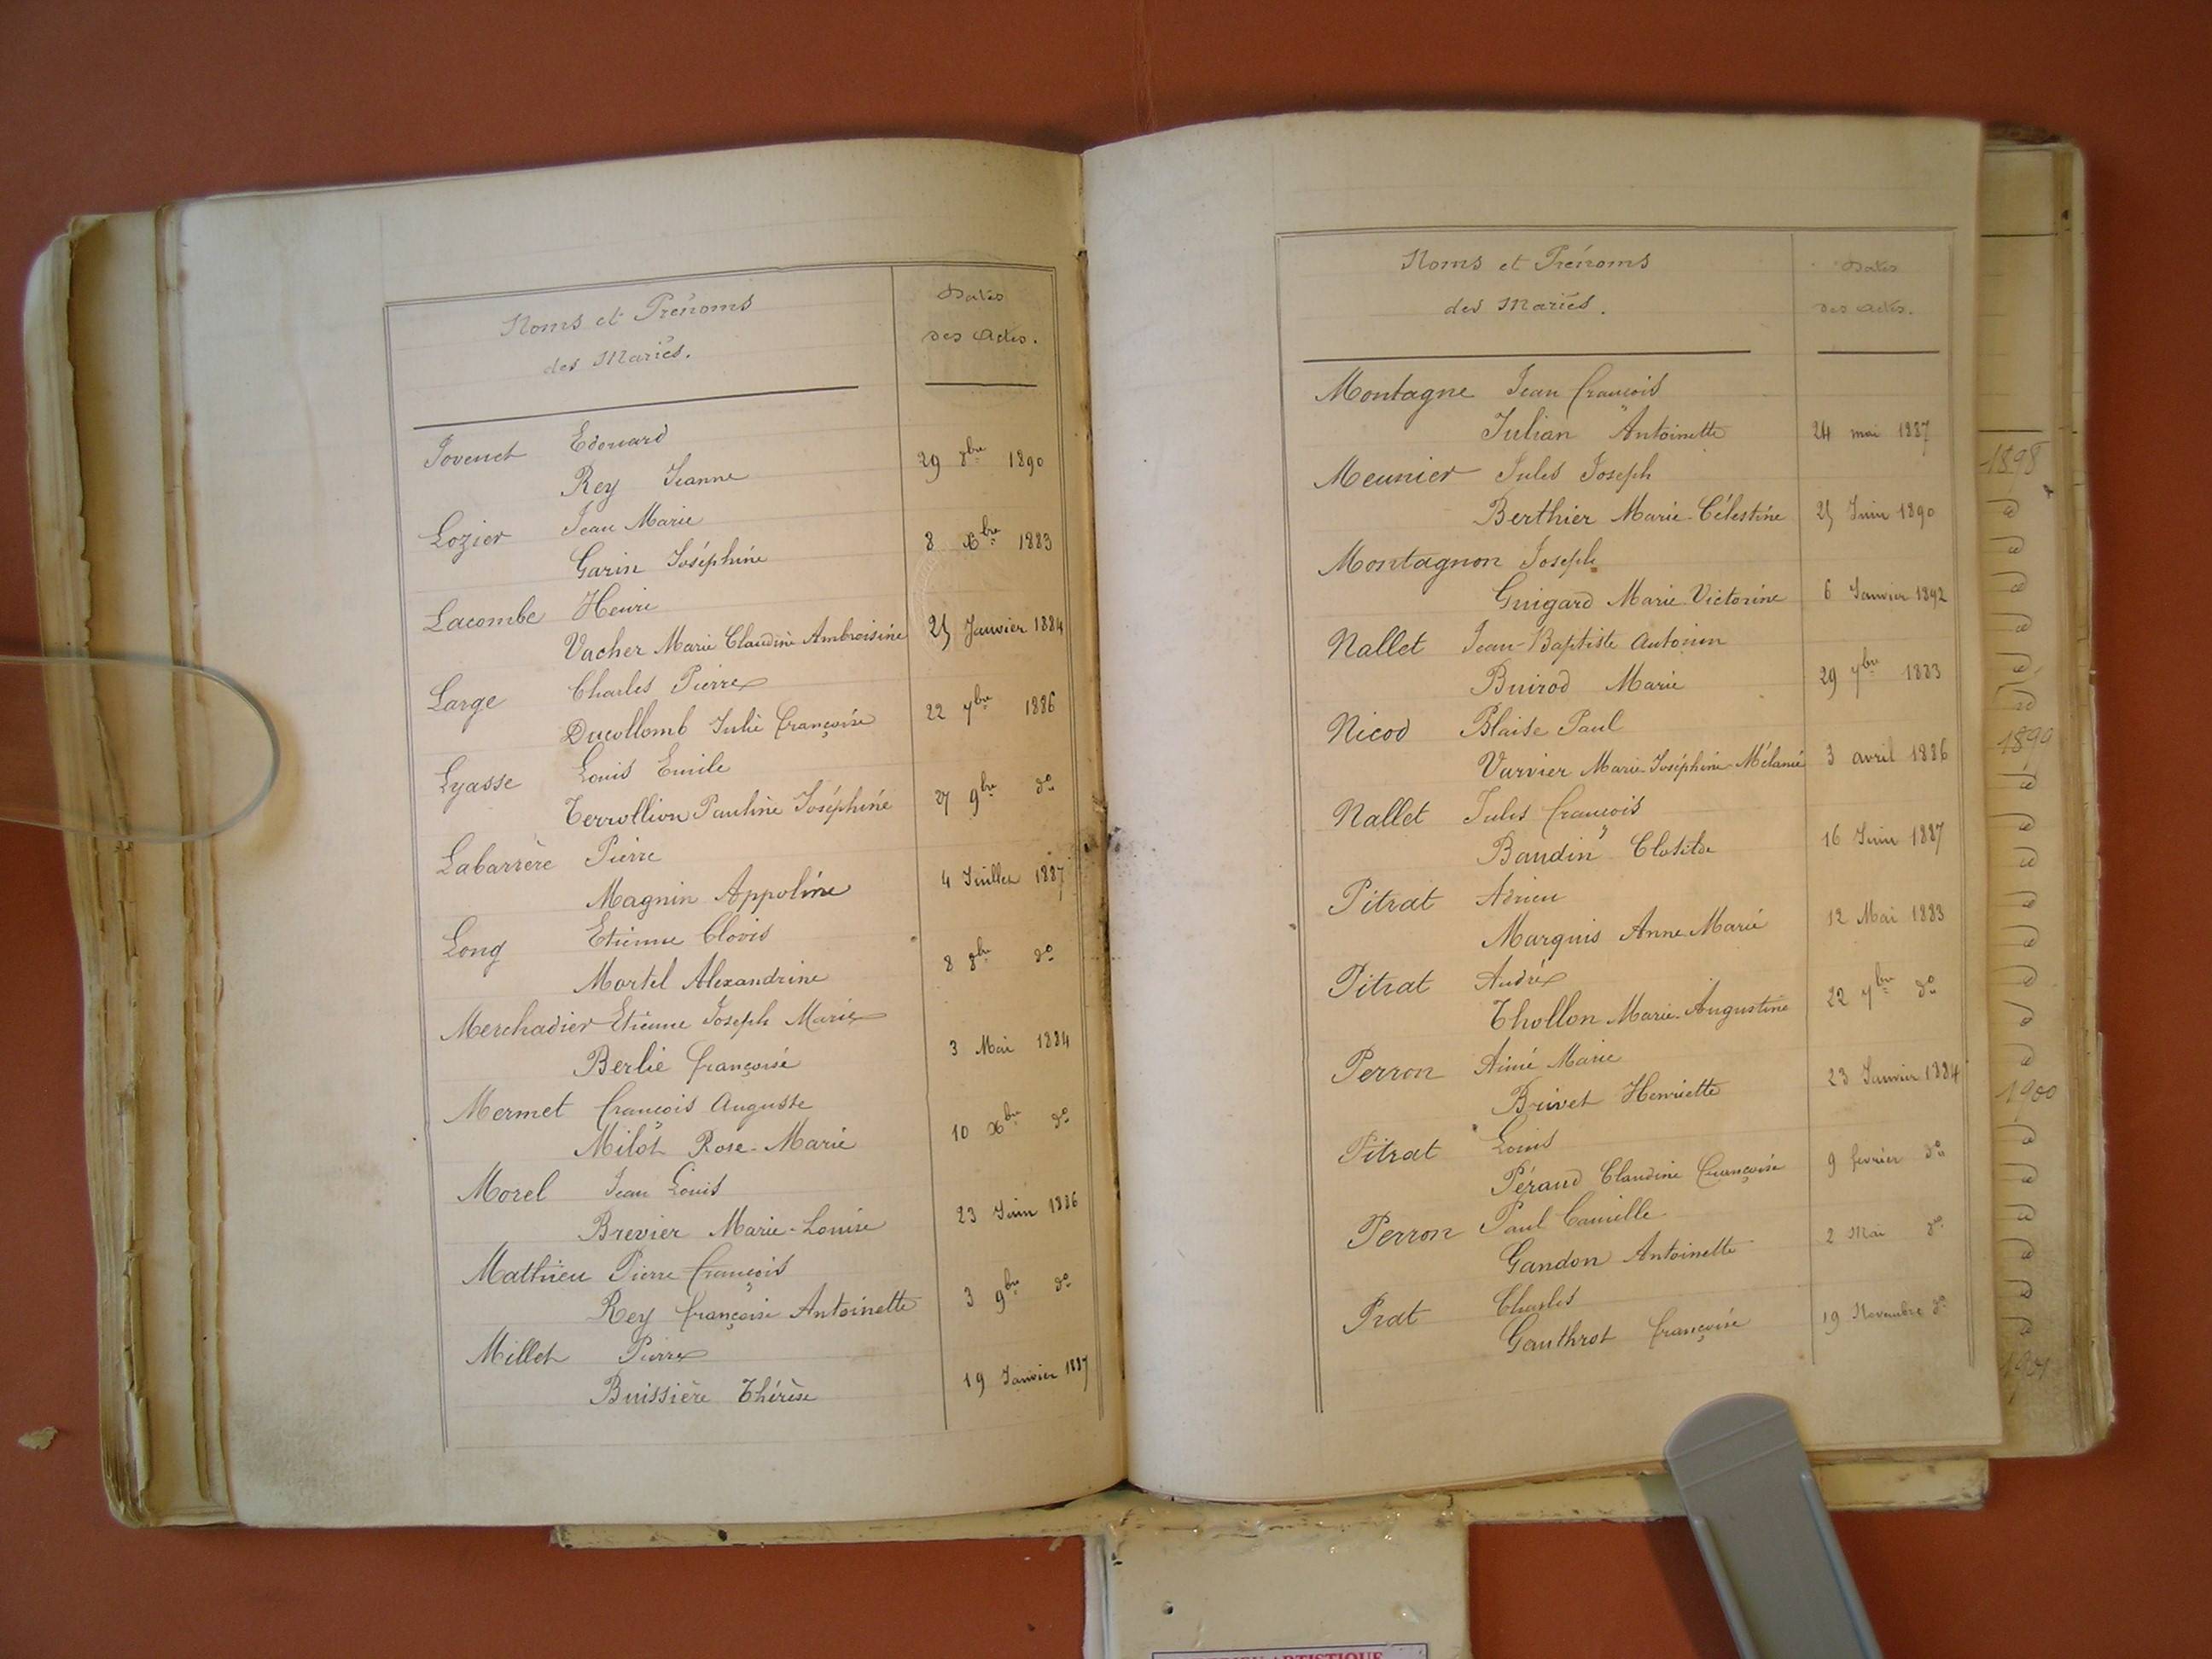 Noms et Prénoms
des Mariés.
Dates
des Actes.
Jovenet Edouard
Rey Jeanne 29 8bre 1890
Lozier Jean Marie
Garin Joséphine 8 Xbre 1883
Lacombe Henri
Vacher Marie Claudine Ambroisine 25 Janvier 1884
Large Charles Pierre
Ducollomb Julie Françoise 22 7bre 1886
Lyasse Louis Emile
Terrollion Pauline Joséphine 27 9bre do
Labarrère Pierre
Magnin Appoline 4 Juillet 1887
Long Etienne Clovis
Mortel Alexandrine 8 8bre do
Merchadier Etienne Joseph Marie
Berlie Françoise 3 Mai 1884
Mermet François Auguste
Milot Rose-Marie 10 Xbre do
Morel Jean Louis
Brevier Marie-Louise 23 Juin 1886
Mathieu Pierre François
Rey Françoise Antoinette 3 9bre do
Millet Pierre
Buissière Thérèse 19 Janvier 1887
Noms et Prénoms
des Mariés.
Dates
des Actes.
Montagne Jean François
Julian Antoinette 24 mai 1887
Meunier Jules Joseph
Berthier Marie-Célestine 25 Juin 1890
Montagnon Joseph
Guigard Marie Victorine 6 Janvier 1892
Nallet Jean-Baptiste Antonin
Buirod Marie 29 7bre 1883
Nicod Blaise Paul
Vurvier Marie-Joséphine-Mélanie 3 avril 1886
Nallet Jules François
Baudin Clotilde 16 Juin 1887
Pitrat Adrien
Marquis Anne Marie 12 Mai 1883
Pitrat André
Thollon Marie-Augustine 22 7bre do
Perron Aimé Marie
Brivet Henriette 23 Janvier 1884
Pitrat Louis
Péraud Claudine Françoise 9 février do
Perron Paul Camille
Gandon Antoinette 2 Mai do
Prat Charles
Gauthrot Françoise 19 Novembre do
1898
1899
1900
1901
ARTISTIQUE